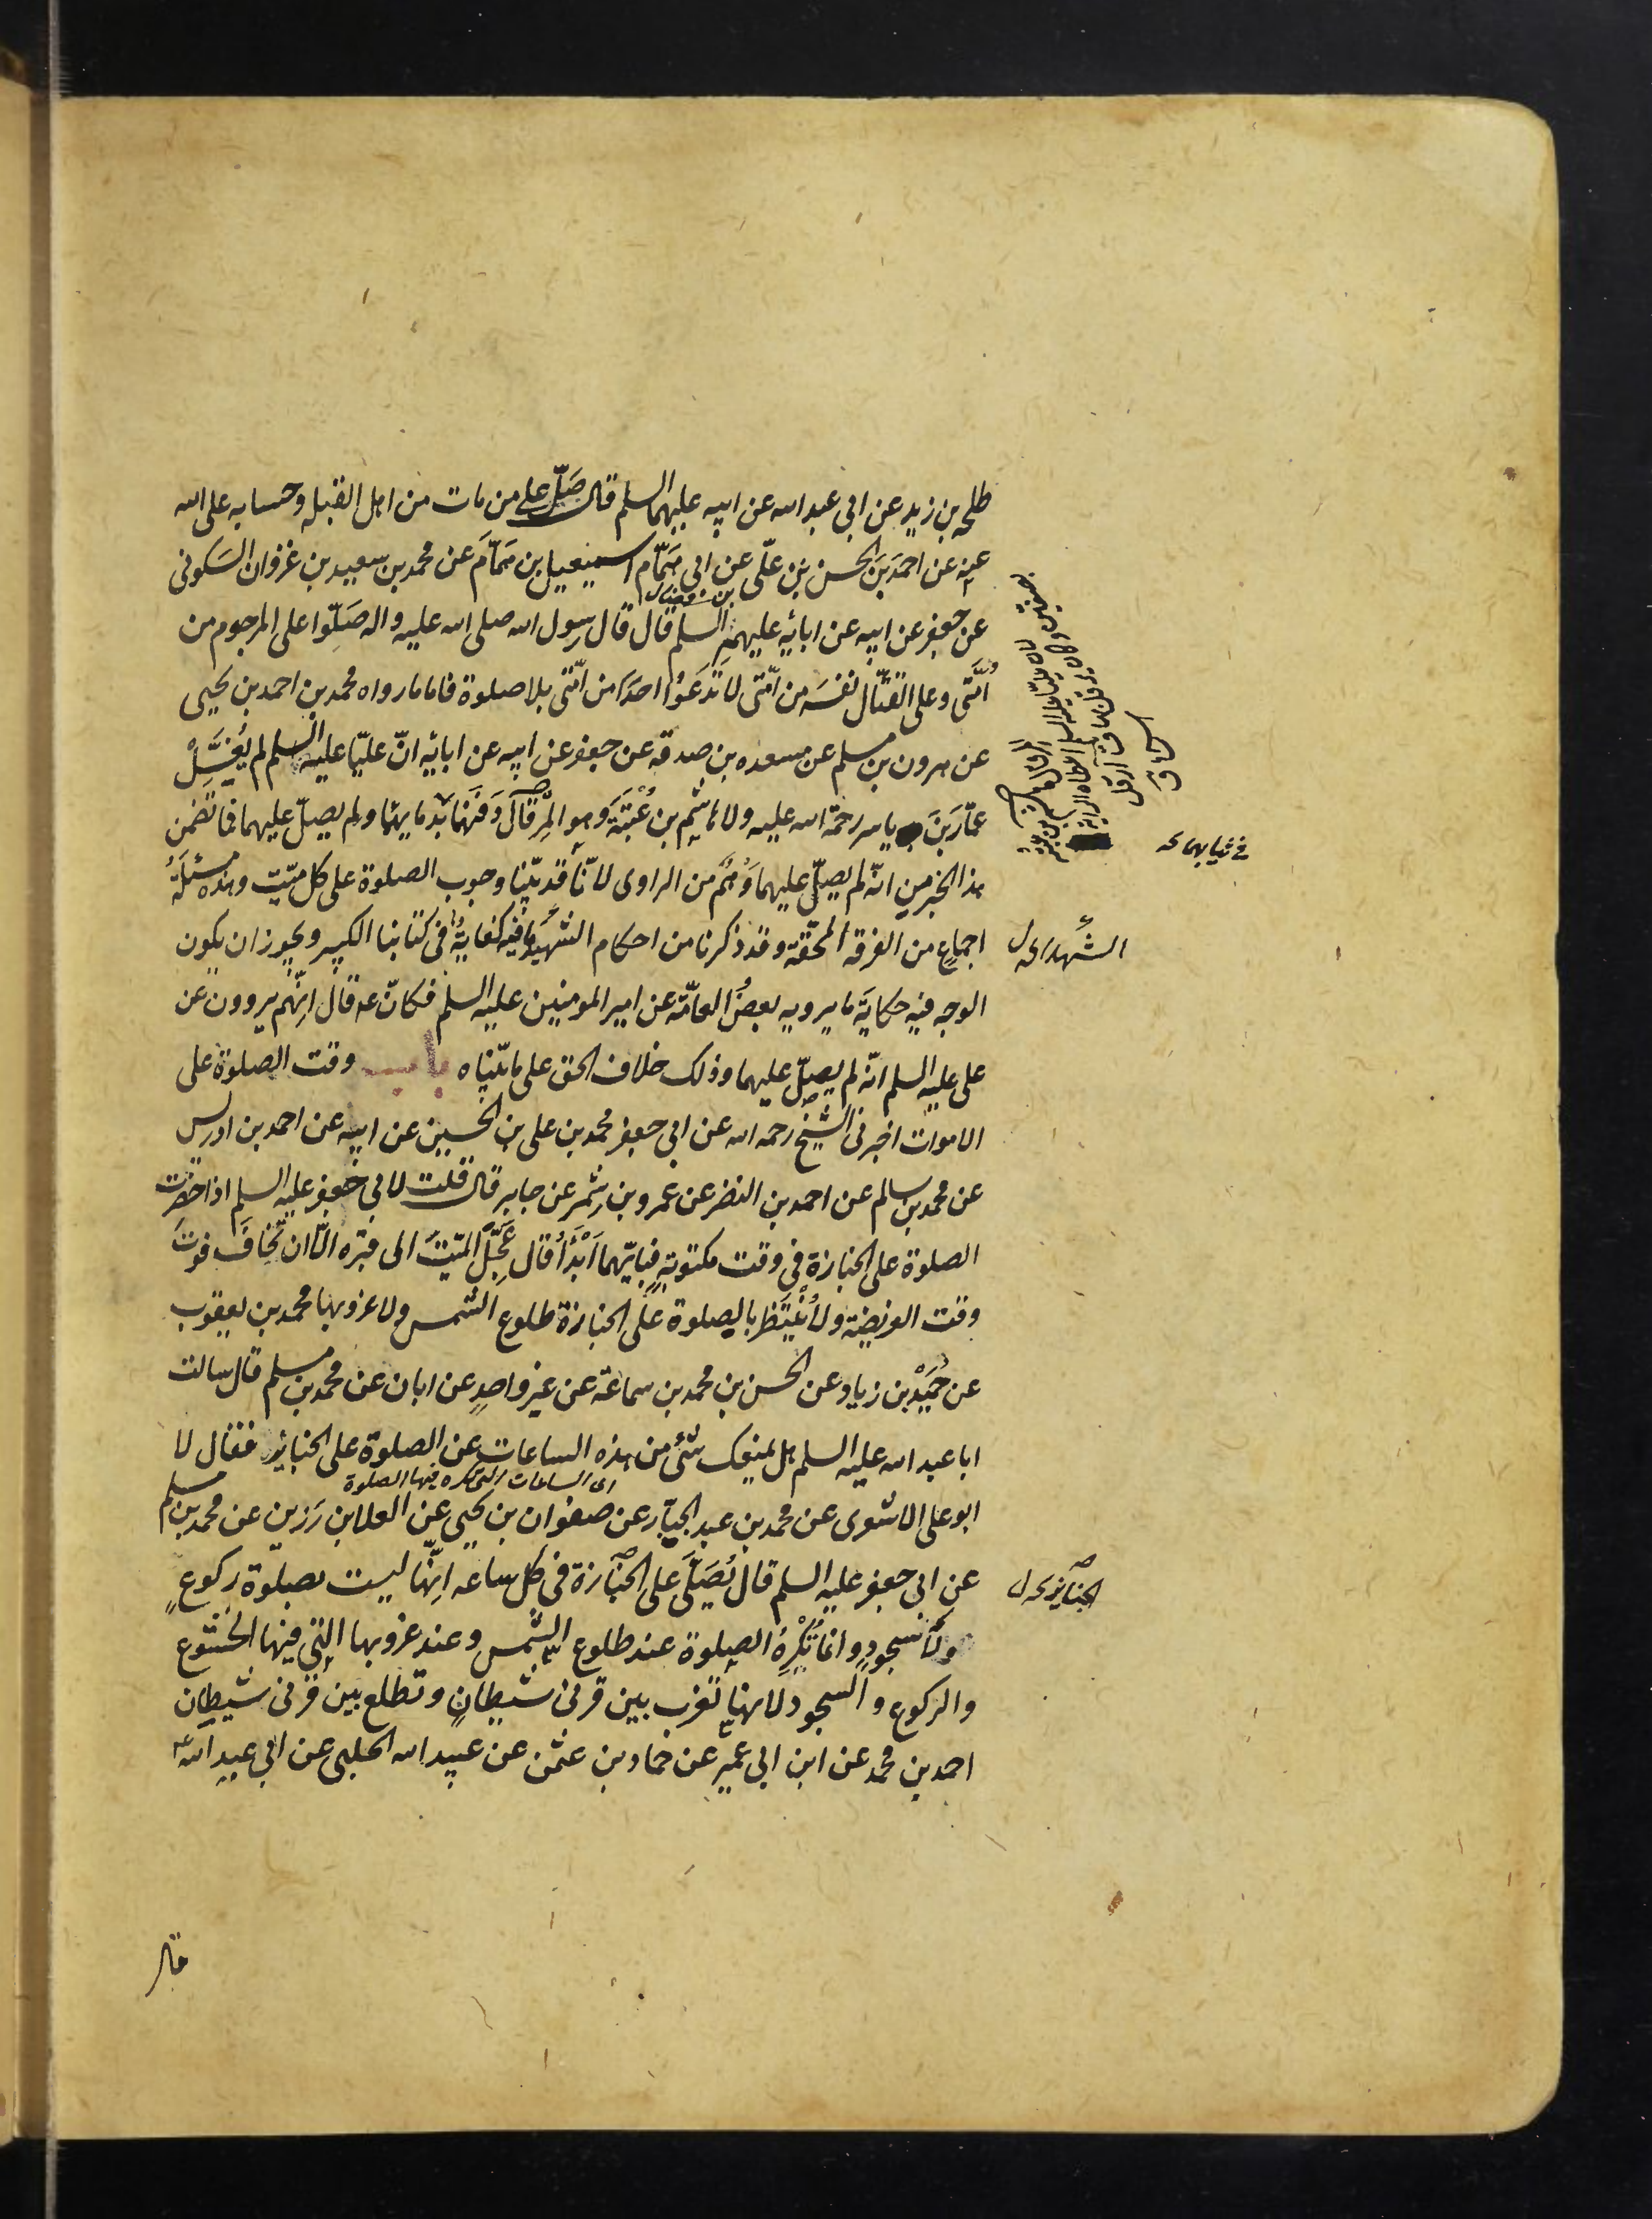 طلحه بن زيد عن ابى عبد الله عن ابيه عليهما السلم قال صَلِّ على من مات من اهل القبله وحسابه على الله
عنه عن احمَدَ بنَ الحسن بنِ علّى عن ابى هَمّام اسمعيل بن هَمّامَ عن محمد بن سعيد بن غزوان السكونى
بن فضال
عن جعفر عن ابيه عن ابائه عليهم السلم قال قال رسول الله صلى الله عليه واله صَلّوا على المرجوم من
اُمّتى وعلى القتّال نفسَه من اُمّتى لا تَدَعوُا احدًا من اُمّتى بلا صلوة فاما ما رواه محمد بن احمد بن يحيى
عن هرون بن مسلم عن مسعده بن صدقه عن جعفر عن ابيه عن ابائه انّ عليّا عليه السلم لم يُغَسِّلْ
عمّارَ بنَ ياسر رحمة الله عليه ولا هاشم بن عُتْبَةَ وهو المِرقال دَفَنَهُما بدمايهما ولم يصلّ عليهما فما تضمن
فى ثيابهما
هذا الخبر من انّه لم يصلّ عليهما وَهْمٌ من الراوى لانّا قد بيّنا وجوب الصلوة على كل ميّت وهذه مسئلةُ
اجماعٍ من الفرقه المحقّة وقد ذكرنا من احكام الشهيد ما فيه كفايةٌ فى كتابنا الكبير ويجوز ان يكون
الشهداء
الوجه فيه حكايةَ ما يرويه بعضُ العامّة عن امير المومنين عليه السلم فكانّه قال اِنّهم يروون عن
على عليه السلم انّه لم يصلّ عليهما وذلك خلاف الحق على ما بيّناه باب وقت الصلوة على
الاموات اخبرنى الشيخ رحمه الله عن ابى جعفر محمد بن على بن الحسين عن ابيه عن احمد بن ادريس
عن محمد بن سالم عن احمد بن النضر عن عمرو بن شمر عن جابر قال قلت لابى جعفر عليه السلم اذا حضرت
الصلوة على الجنازة فى وقت مكتوبةٍ فبايّهما اَبْدَأُ قال عَجِّلِ الميّتَ الى قبره الّا ان تخافَ فوتَ
وقت الفريضة ولا تنتظر بالصلوة على الجنازة طلوع الشمس ولا غروبها محمد بن يعقوب
عن حُمَيْد بن زياد عن الحسن بن محمد بن سماعة عن غير واحدٍ عن ابان عن محمد بن مسلم قال سالت
ابا عبد الله عليه السلم هل يمنعك شئ من هذه الساعات عن الصلوة على الجنايز فقال لا
اى الساعات التى تكره فيها الصلوة
ابو على الاشعرى عن محمد بن عبد الجبّار عن صفوان بن يحيى عن العلا بن رَزين عن محمد بن مسلم
عن ابى جعفر عليه السلم قال يُصَلّى على الجنازة فى كل ساعه اِنّها ليست بصلوة ركوعٍ
الجنايز
ولا سجودٍ وانما تُكْرَهُ الصلوة عند طلوع الشمس وعند غروبها التى فيها الخشوع
والركوع والسجود لانها تغرب بين قرنى شيطانٍ وتطلع بين قرنى شيطان
احمد بن محمد عن ابن ابى عمير عن حماد بن عثمن عن عبيد الله الحلبى عن ابى عبد الله
قال